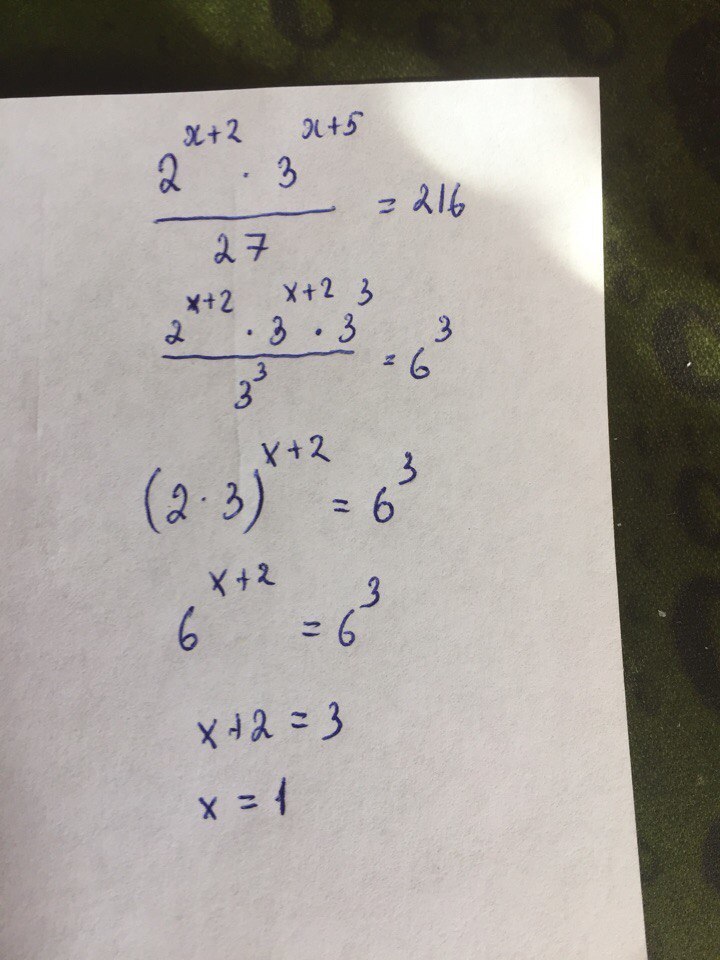 2^{x+2} · 3^{x+5} / 27 = 216
2^{x+2} · 3^{x+2} · 3^3 / 3^3 = 6^3
(2 · 3)^{x+2} = 6^3
6^{x+2} = 6^3
x+2 = 3
x = 1